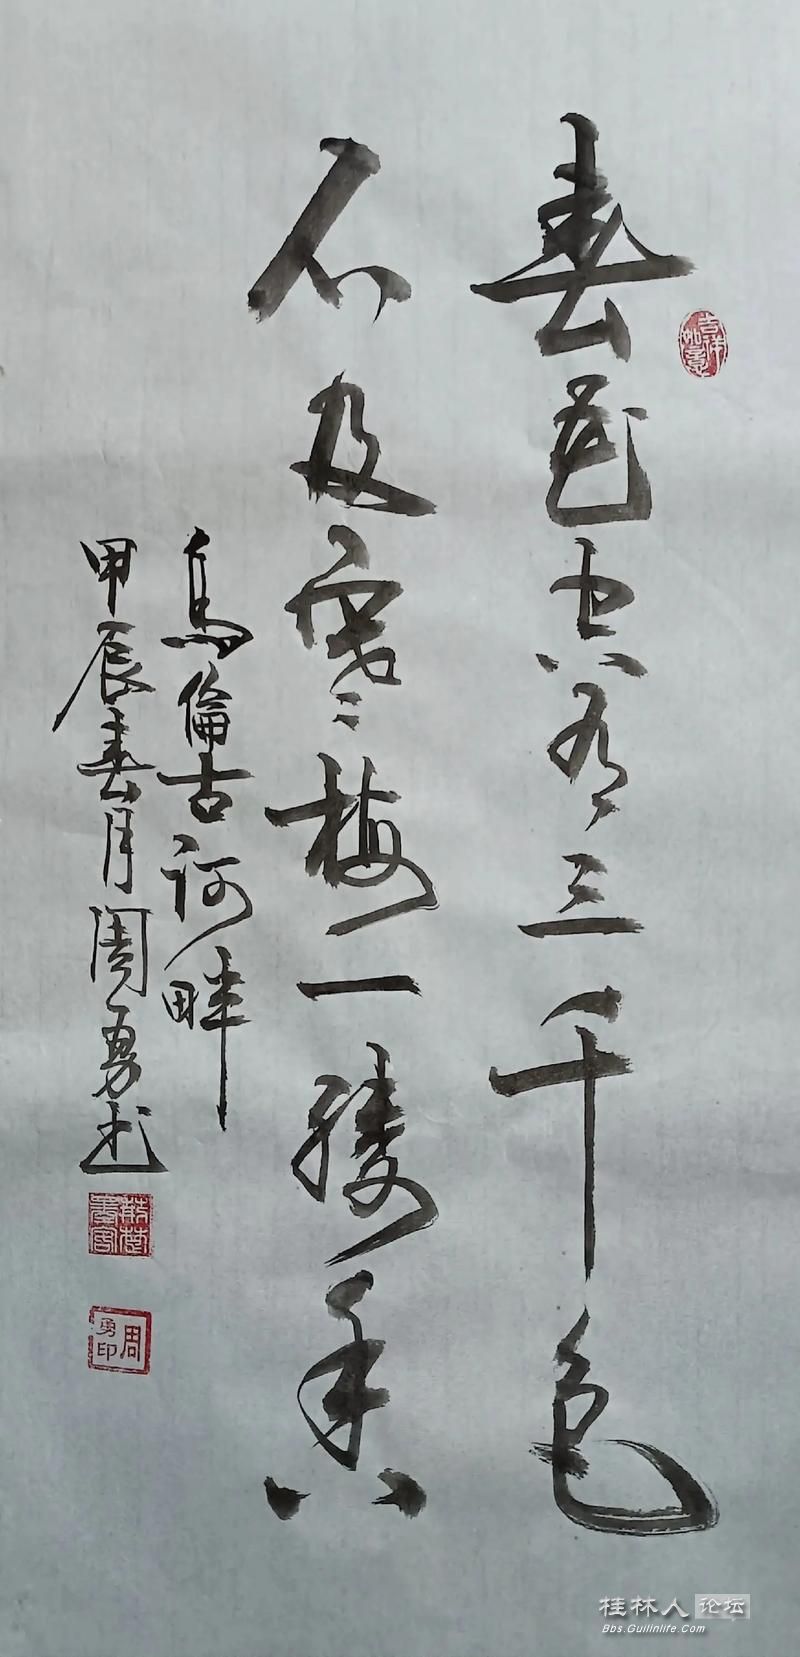 春色空有三千色
不及寒梅一缕香
烏倫古河畔
甲辰春月周勇书
吉祥如意
周勇印
桂林人论坛
Bbs.Guilinlife.Com